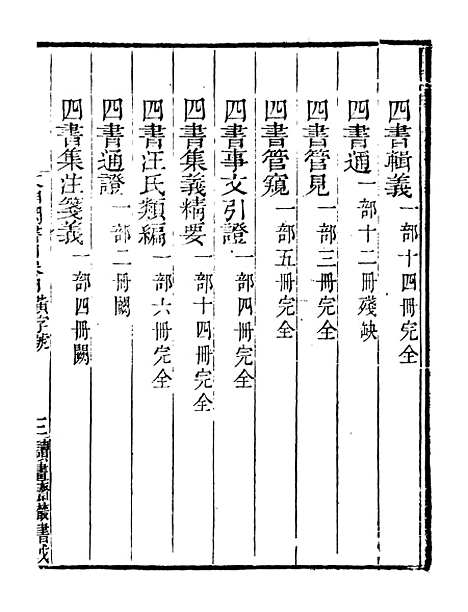 四書輯義一部十四冊完全
四書通一部十二冊殘缺
四書管見一部三冊完全
四書管窺一部五冊完全
四書事文引證一部四冊完全
四書集義精要一部十四冊完全
四書汪氏類編一部六冊完全
四書通證一部二冊闕
四書集注箋義一部四冊闕
三 讀畫齋叢書戊